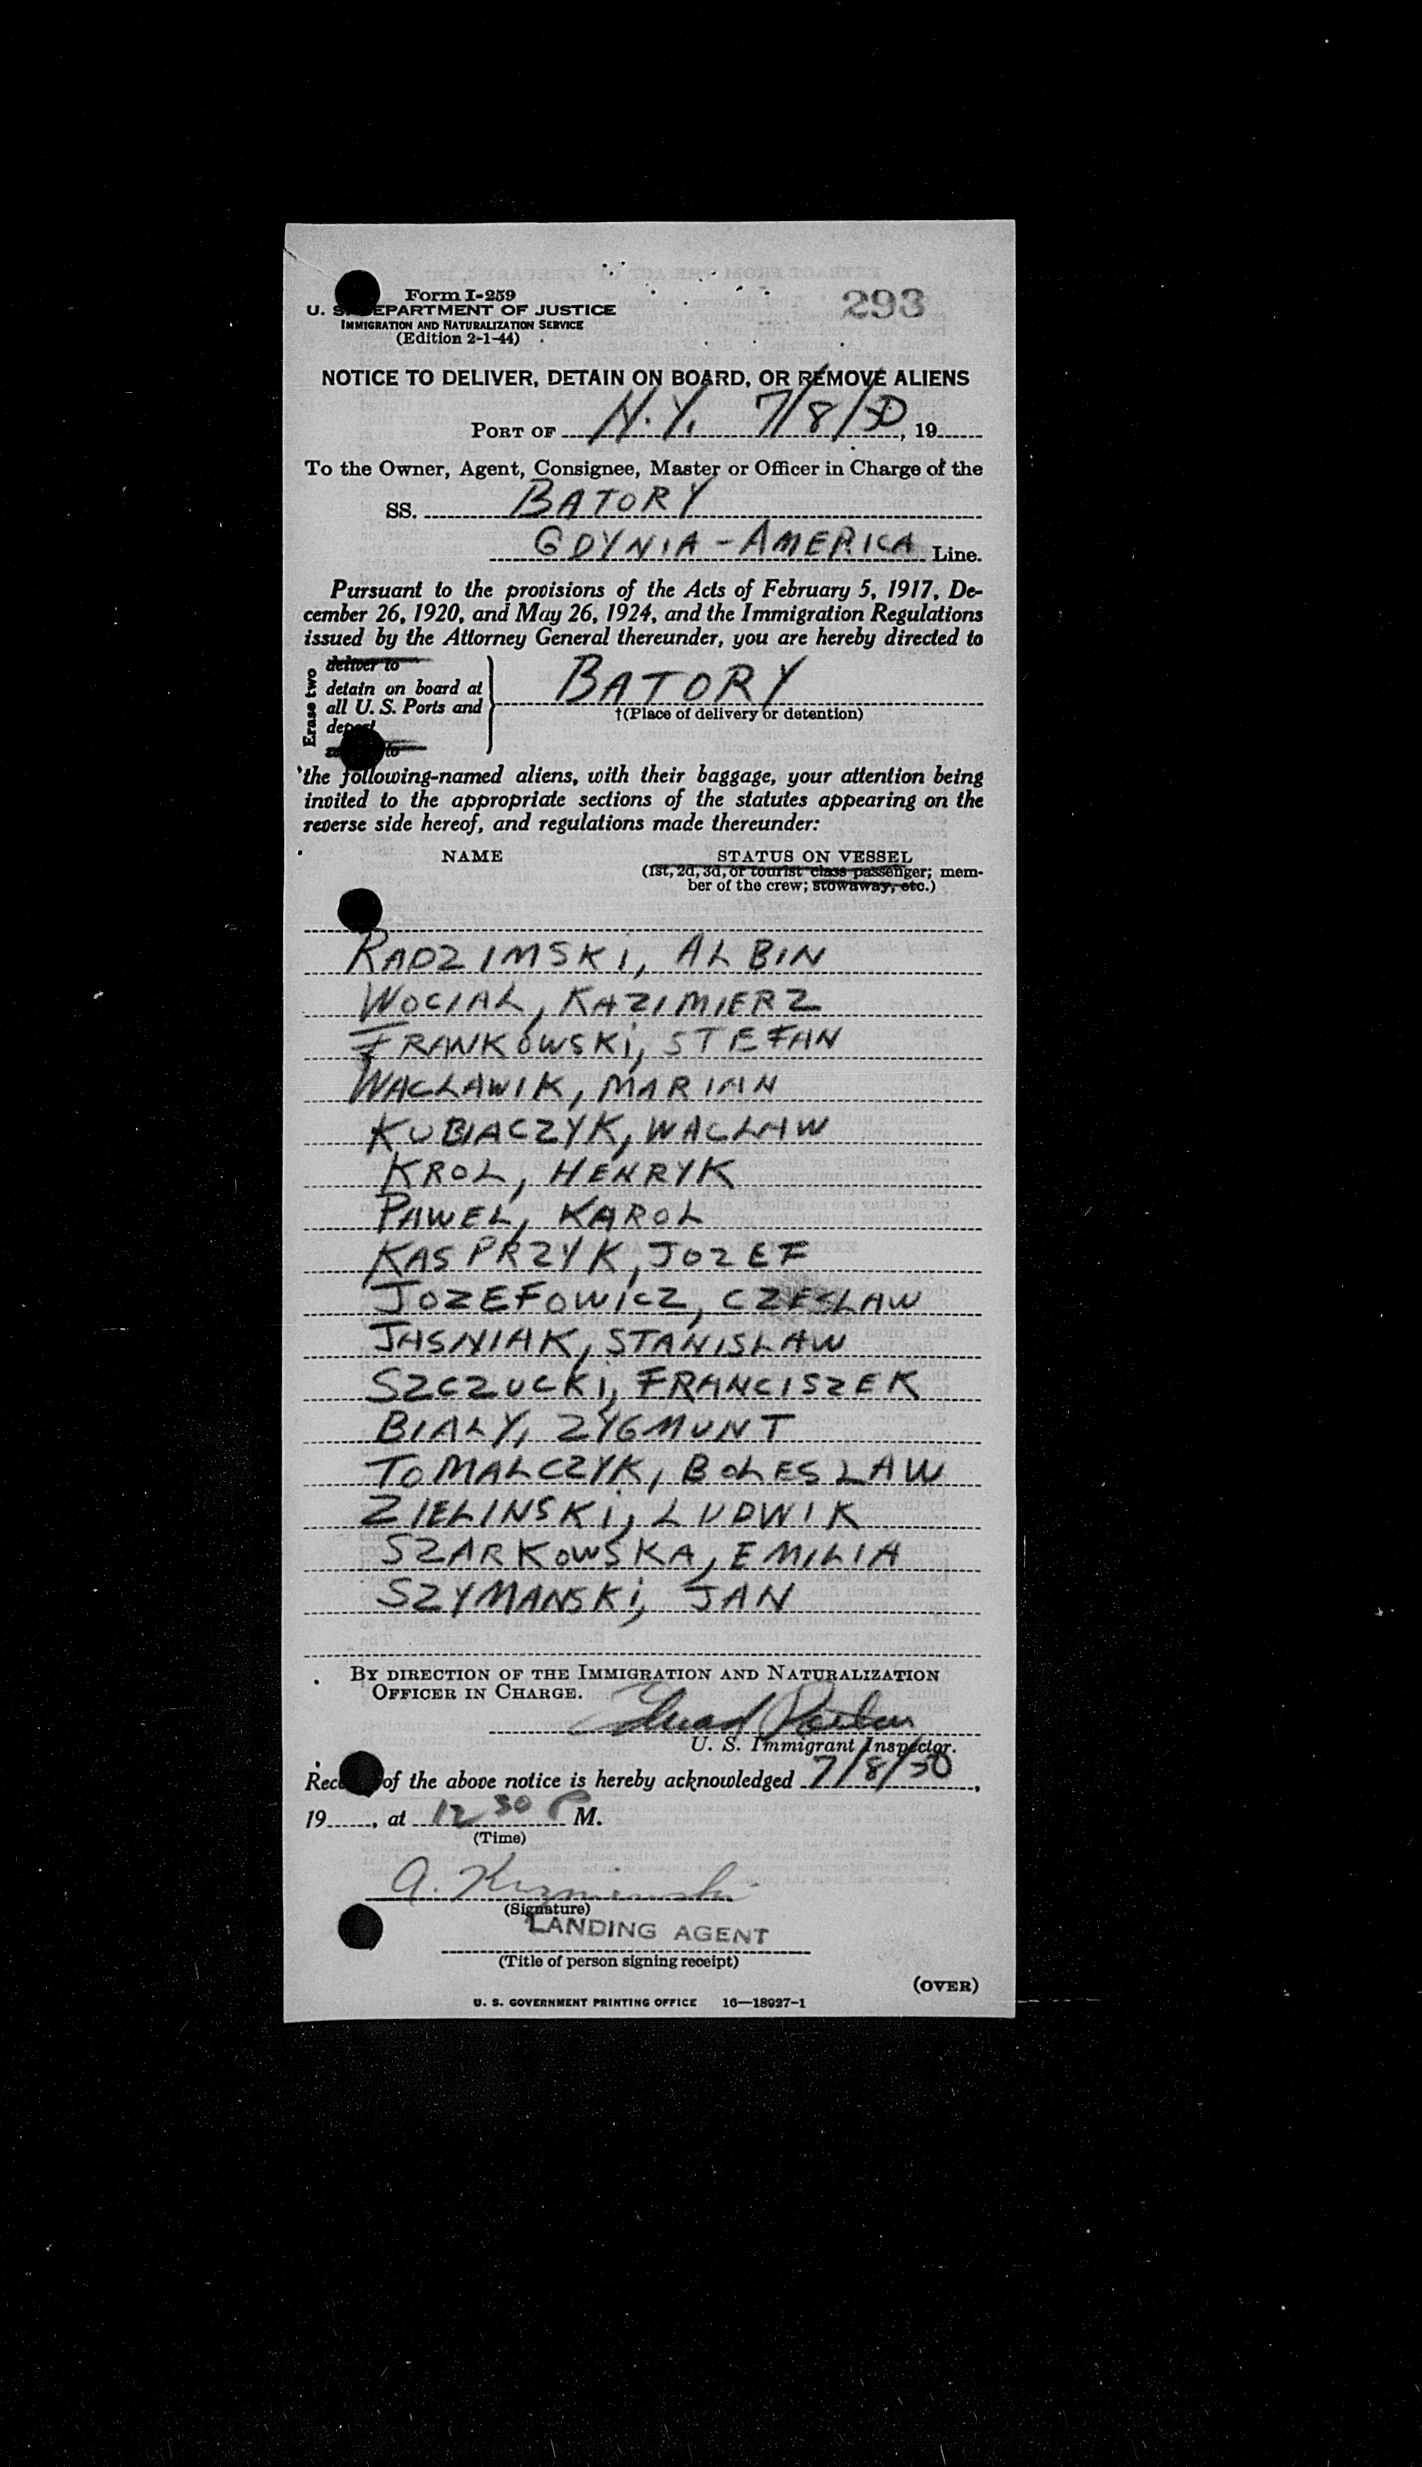 Form I-259
293
U. S. DEPARTMENT OF JUSTICE
IMMIGRATION AND NATURALIZATION SERVICE
(Edition 2-1-44)
NOTICE TO DELIVER, DETAIN ON BOARD, OR REMOVE ALIENS
PORT OF N.Y. 7/8/50, 19
To the Owner, Agent, Consignee, Master or Officer in Charge of the
SS. BATORY
GDYNIA-AMERICA Line.
Pursuant to the provisions of the Acts of February 5, 1917, De-
cember 26, 1920, and May 26, 1924, and the Immigration Regulations
issued by the Attorney General thereunder, you are hereby directed to
Erase two
deliver to
detain on board at
all U. S. Ports and
deport
to
BATORY
†(Place of delivery or detention)
the following-named aliens, with their baggage, your attention being
invited to the appropriate sections of the statutes appearing on the
reverse side hereof, and regulations made thereunder:
NAME STATUS ON VESSEL
(1st, 2d, 3d, or tourist class passenger; mem-
ber of the crew; stowaway, etc.)
RADZIMSKI, ALBIN
WOCIAL, KAZIMIERZ
FRANKOWSKI, STEFAN
WACLAWIK, MARIAN
KUBIACZYK, WACLAW
KROL, HENRYK
PAWEL, KAROL
KASPRZYK, JOZEF
JOZEFOWICZ, CZESLAW
JASNIAK, STANISLAW
SZCZUCKI, FRANCISZEK
BIALY, ZYGMUNT
TOMALCZYK, BOLESLAW
ZIELINSKI, LUDWIK
SZARKOWSKA, EMILIA
SZYMANSKI, JAN
BY DIRECTION OF THE IMMIGRATION AND NATURALIZATION
OFFICER IN CHARGE.
U. S. Immigrant Inspector.
Rec of the above notice is hereby acknowledged 7/8/50,
19, at 12 30 P M.
(Time)
A.
(Signature)
LANDING AGENT
(Title of person signing receipt)
(OVER)
U. S. GOVERNMENT PRINTING OFFICE 16—18027-1